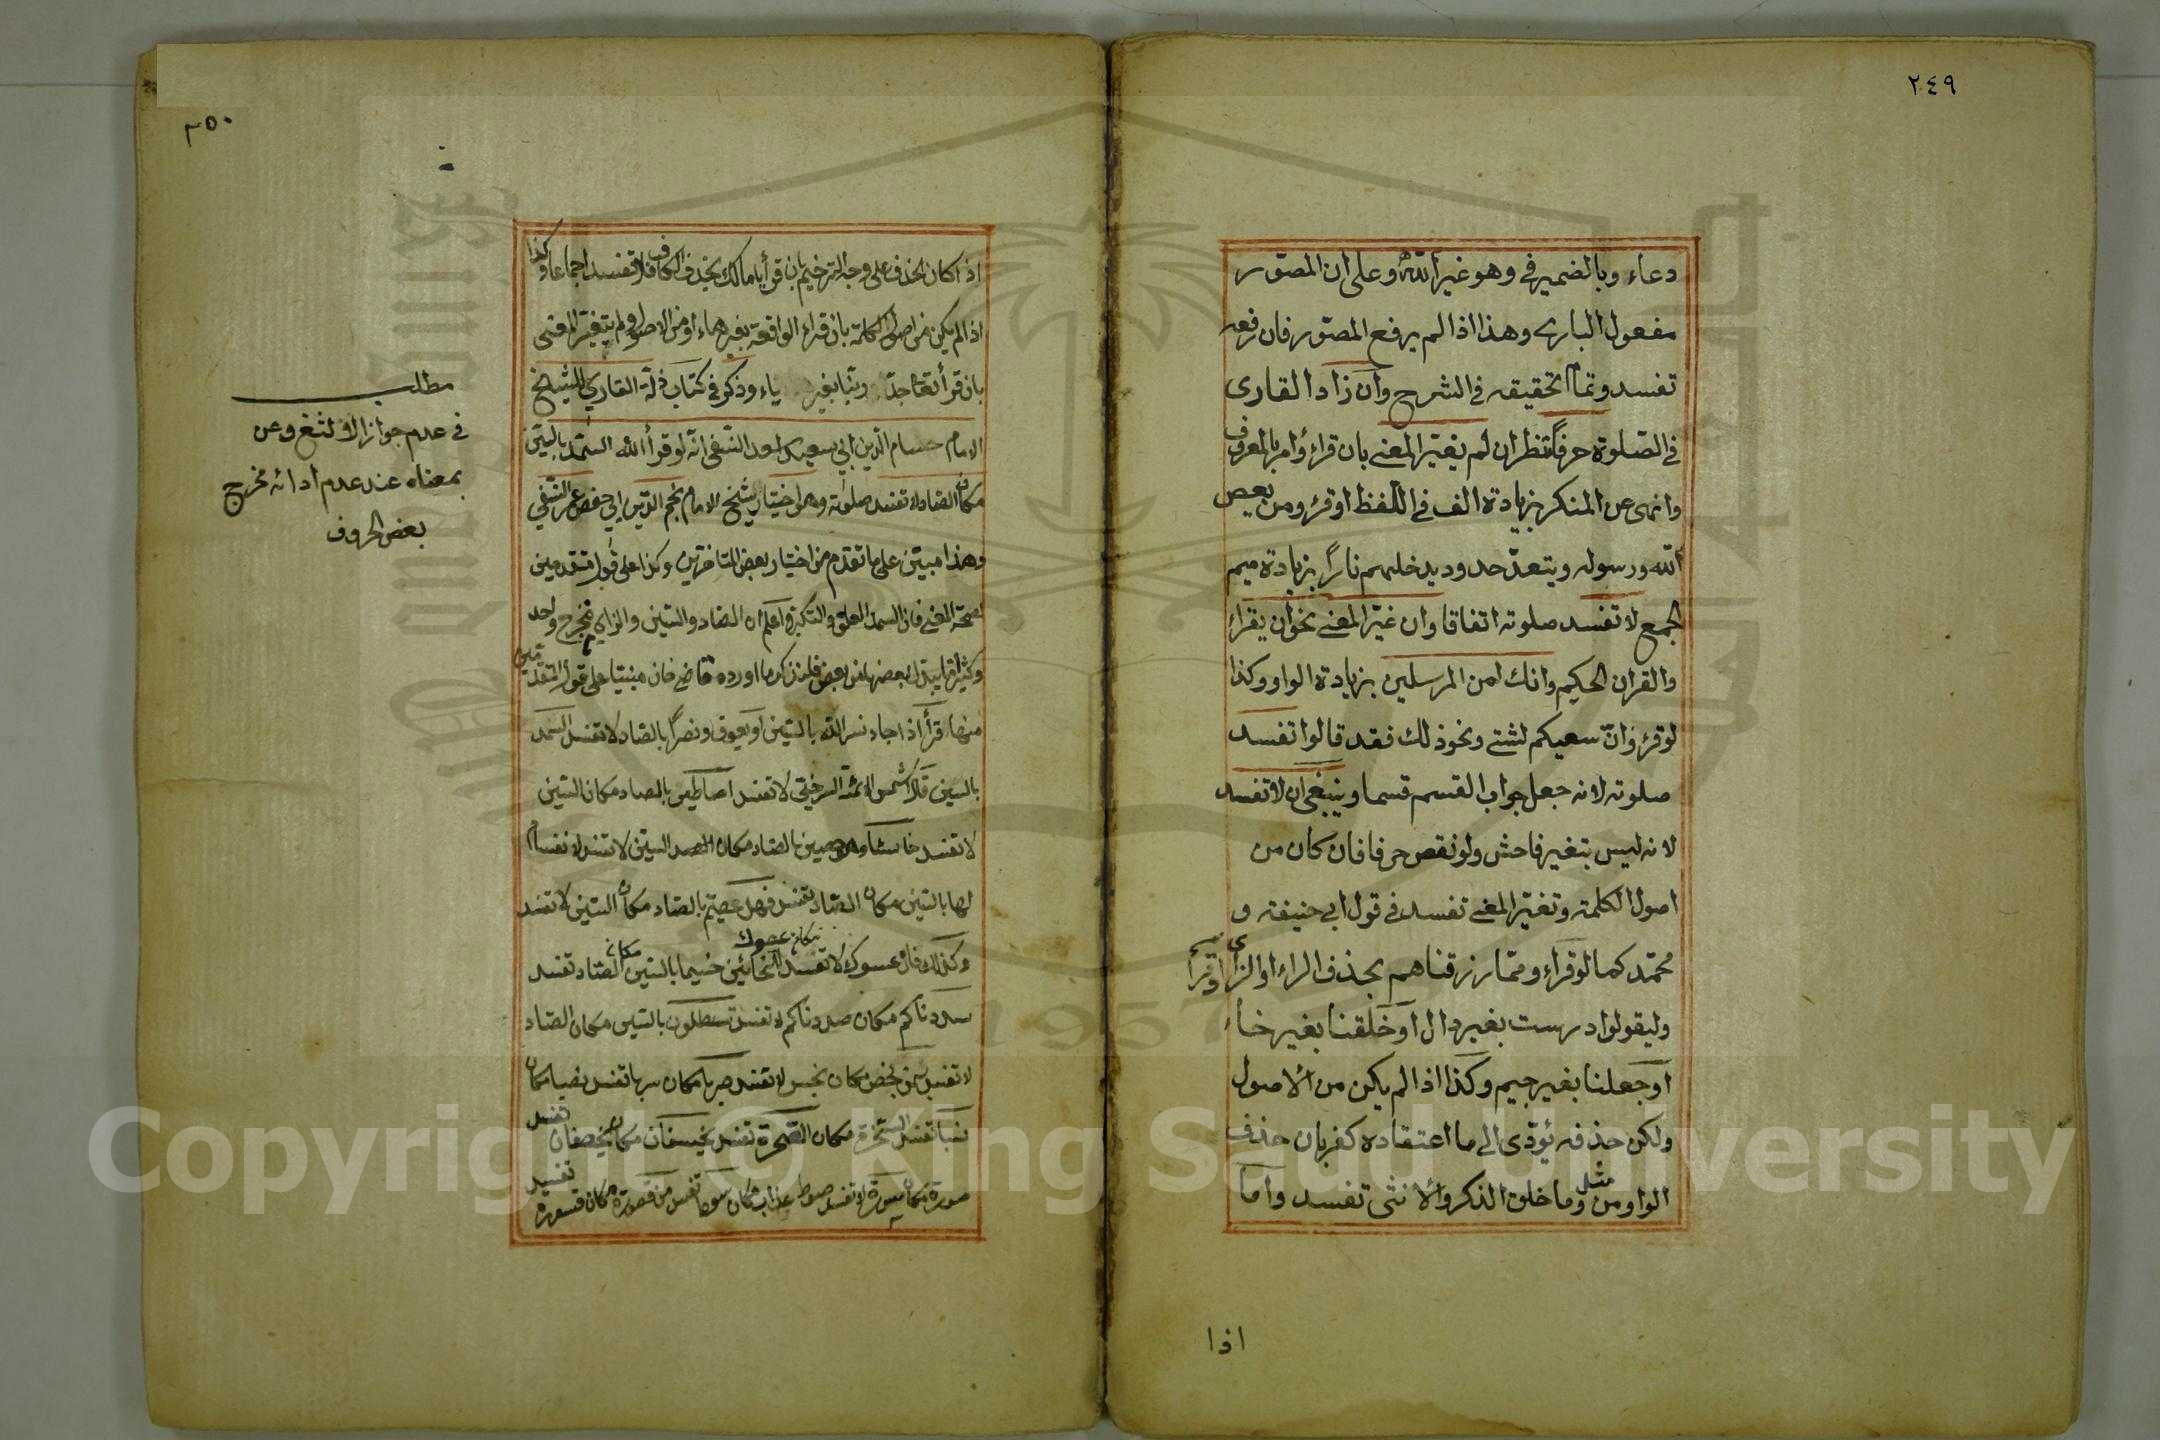 ٢٤٩
دعاء وبالضمير في وهو غير الله وعلى ان المصور
مفعول الباري وهذا اذا لم يرفع المصور فان رفعه
تفسد وتمام تحقيقه في الشرح وان زاد القارى
في الصلوة حرفا تنظر ان لم يغير المعنى بان قرأ وأمر بالمعروف
وانهى عن المنكر بزيادة الف في اللفظ او قرأ ومن يعص
الله ورسوله ويتعد حدوده يدخلهم نارا بزيادة ميم
الجمع لا تفسد صلوته اتفاقا وان غير المعنى نحو ان يقرأ
والقران الحكيم وانك لمن المرسلين بزيادة الواو وكذا
لو قرئ وان سعيكم لشتى ونحو ذلك فقد قالوا تفسد
صلوته لانه جعل جواب القسم قسما وينبغي ان لا تفسد
لانه ليس بتغير فاحش ولو نقص حرفا فان كان من
اصول الكلمة وتغير المعنى تفسد في قول ابي حنيفة و
محمد كما لو قرأ ومما رزقناهم بحذف الراء او الزاى او قرأ
وليقولوا درست بغير دال او خلقنا بغير خاء
او جعلنا بغير جيم وكذا اذا لم يكن من الاصول
ولكن حذفه يؤدى الى ما اعتقاده كفر بان حذف
الواو من مثل وما خلق الذكر والانثى تفسد واما
اذا
٢٥٠
اذا كان الحذف على وجه الترخيم بان قرأ يا مالك بحذف الكاف فلا تفسد اجماعا وكذا
اذا لم يكن من اصول الكلمة بان قرأ الواقعة بغير هاء او من الاصول ولم يتغير المعنى
بان قرأ تعا جد ربنا بغير ياء وذكر في كتاب زلة القاري للشيخ
الامام حسام الدين ابي سعيد النسفي انه لو قرأ الله السمد بالسين
مكان الصاد لا تفسد صلوته وهو اختيار شيخ الامام نجم الدين ابي حفص عمر النسفي
وهذا مبين على ما تقدم من اختيار بعض المتاخرين وكذا على قول متقدمين
لصحة المعنى فان السمد العلو والتكبر اعلم ان الصاد والسين والزاى مخرج واحد
وكثيرا ما يبدل بعضها من بعض فلنذكر ما اورده قاضى خان مبنيا على قول المتقدمين
منها قرأ اذا جاء نسر الله بالسين او يعوق ونصرا بالصاد لا تفسد السمد
بالسين قال شمس الائمة السرخسي لا تفسد اصاطير بالصاد مكان السين
لا تفسد خاسئا بالصاد مكان السين لا تفسد لا نفسام
لها بالسين مكان الصاد تفسد فهل عصيتم بالصاد مكان السين لا تفسد
وكذلك فان عسوك مكان عصوك لا تفسد خسيما بالسين مكان الصاد تفسد
سددناكم مكان صددناكم لا تفسد تسطلون بالسين مكان الصاد
لا تفسد بثمن بخص مكان بخس لا تفسد صربا مكان سربا تفسد نصبا مكان
نسبا تفسد السخرة مكان الصخرة تفسد يخسفان مكان يخصفان تفسد
صورة مكان سورة لا تفسد صوط عذاب مكان سوط تفسد من قصورة مكان قسورة تفسد
مطلب
في عدم جواز الالثغ وعن
بمعناه عند عدم ادائه مخرج
بعض الحروف
Copyright © King Saud University
1957